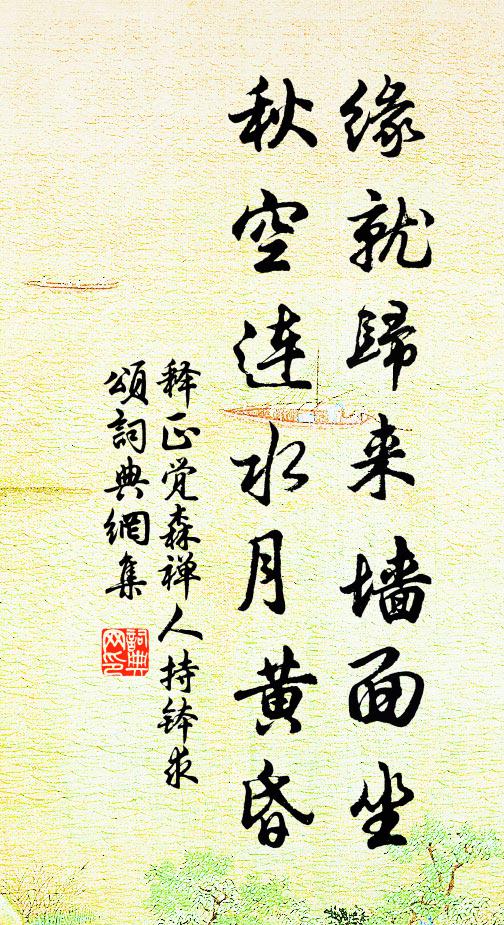 缘就歸来墙面坐
秋空连水月黄昏
释正觉森禅人持钵求
颂詞典網集
詞典网印